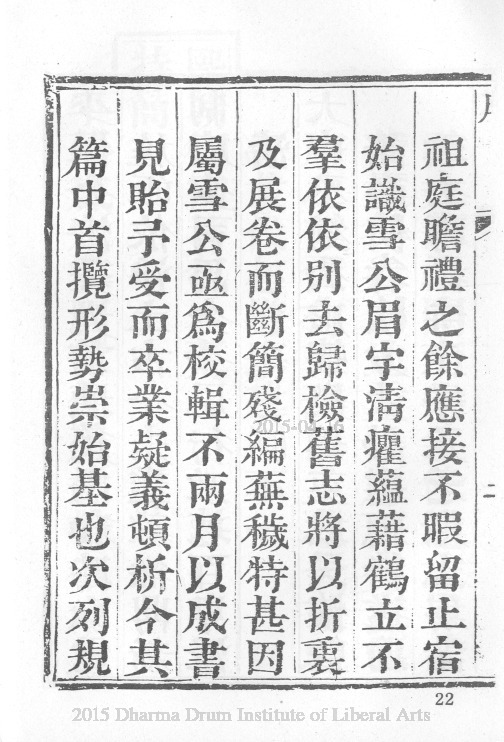 祖庭瞻禮之餘應接不暇留止宿
始識雪公眉宇清癯蘊藉鶴立不
羣依依别去歸檢舊志將以折衷
及展卷而斷簡殘編蕪穢特甚因
屬雪公亟爲校輯不兩月以成書
見貽予受而卒業疑義頓析今其
篇中首攬形勢崇始基也次列規
二
2015-04-16
22
2015 Dharma Drum Institute of Liberal Arts